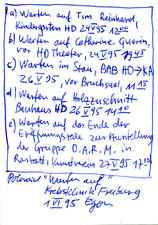 a) Warten auf Tim Reinhard,
Kindergarten HD 24 V 95 12 00
b) Warten auf Catherine Guerin,
vor HD Theater, 24 V 95 19 45
c) Warten im Stau, BAB HD→KA
26 V 95, vor Bruchsal, 11 15
d) Warten auf Holzzuschnitt
Bauhaus HD 26 V 95 14 10
e) Warten auf das Ende der
Eröffnungsrede zur Ausstellung
der Gruppe D.A.R.M. in
Rastatt, Kunstverein 27 V 95 17 20
Polaroid "Warten auf"
Krebsklinik Freiburg
1 VI 95 Egon